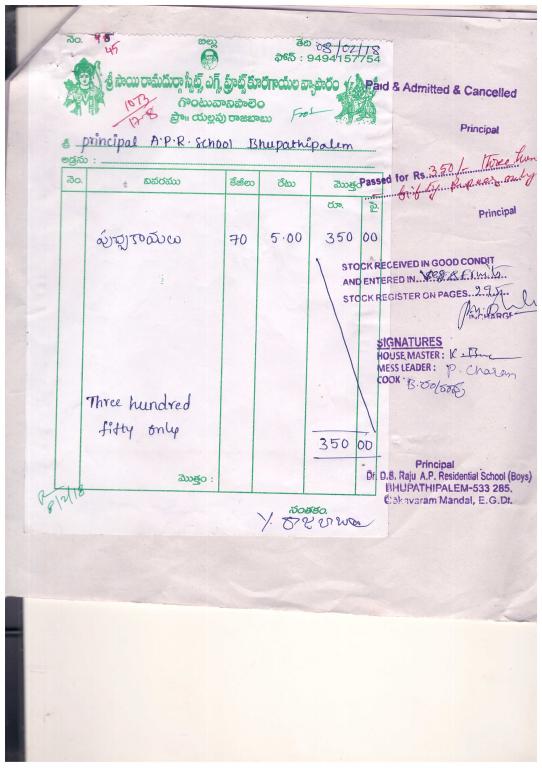 నెం. 98
45
బిల్లు
తేది 08/02/18
ఫోన్ : 9494157754
శ్రీ సాయి రామదుర్గా స్వీట్స్ ఎగ్స్ ఫ్రూట్స్ కూరగాయల వ్యాపారం
1073
17-8
గొంటువానిపాలెం
ప్రొ॥ యల్లపు రాజబాబు
శ్రీ principal A.P.R. School Bhupathipalem
అడ్రసు :
నెం. వివరము కేజీలు రేటు మొత్తం
రూ. పై.
పుచ్చకాయలు 70 5.00 350 00
Three hundred
fifty only
350 00
మొత్తం :
8/2/18
సంతకం.
Y. రాజబాబు
Paid & Admitted & Cancelled
Principal
Passed for Rs. 350/- Three hun
fifty rupees only
Principal
STOCK RECEIVED IN GOOD CONDIT
AND ENTERED IN
STOCK REGISTER ON PAGES 295
SIGNATURES
HOUSE MASTER :
MESS LEADER : P. Charan
COOK
Principal
Dr. D.S. Raju A.P. Residential School (Boys)
BHUPATHIPALEM-533 285.
Gokavaram Mandal, E.G.Dt.